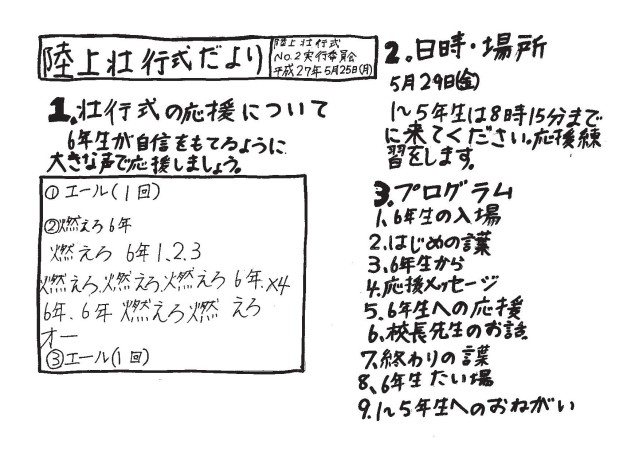 陸上壮行式だより
陸上壮行式
No.2実行委員会
平成27年5月25日(月)
1.壮行式の応援について
6年生が自信をもてるように
大きな声で応援しましょう。
①エール(1回)
②燃えろ6年
燃えろ 6年1、2、3
燃えろ、燃えろ、燃えろ 6年、×4
6年、6年 燃えろ燃 えろ
オー
③エール(1回)
2.日時・場所
5月29日(金)
1～5年生は8時15分まで
に来てください。応援練
習をします。
3.プログラム
1、6年生の入場
2、はじめの言葉
3、6年生から
4、応援メッセージ
5、6年生への応援
6、校長先生のお話
7、終わりの言葉
8、6年生たい場
9、1～5年生へのおねがい